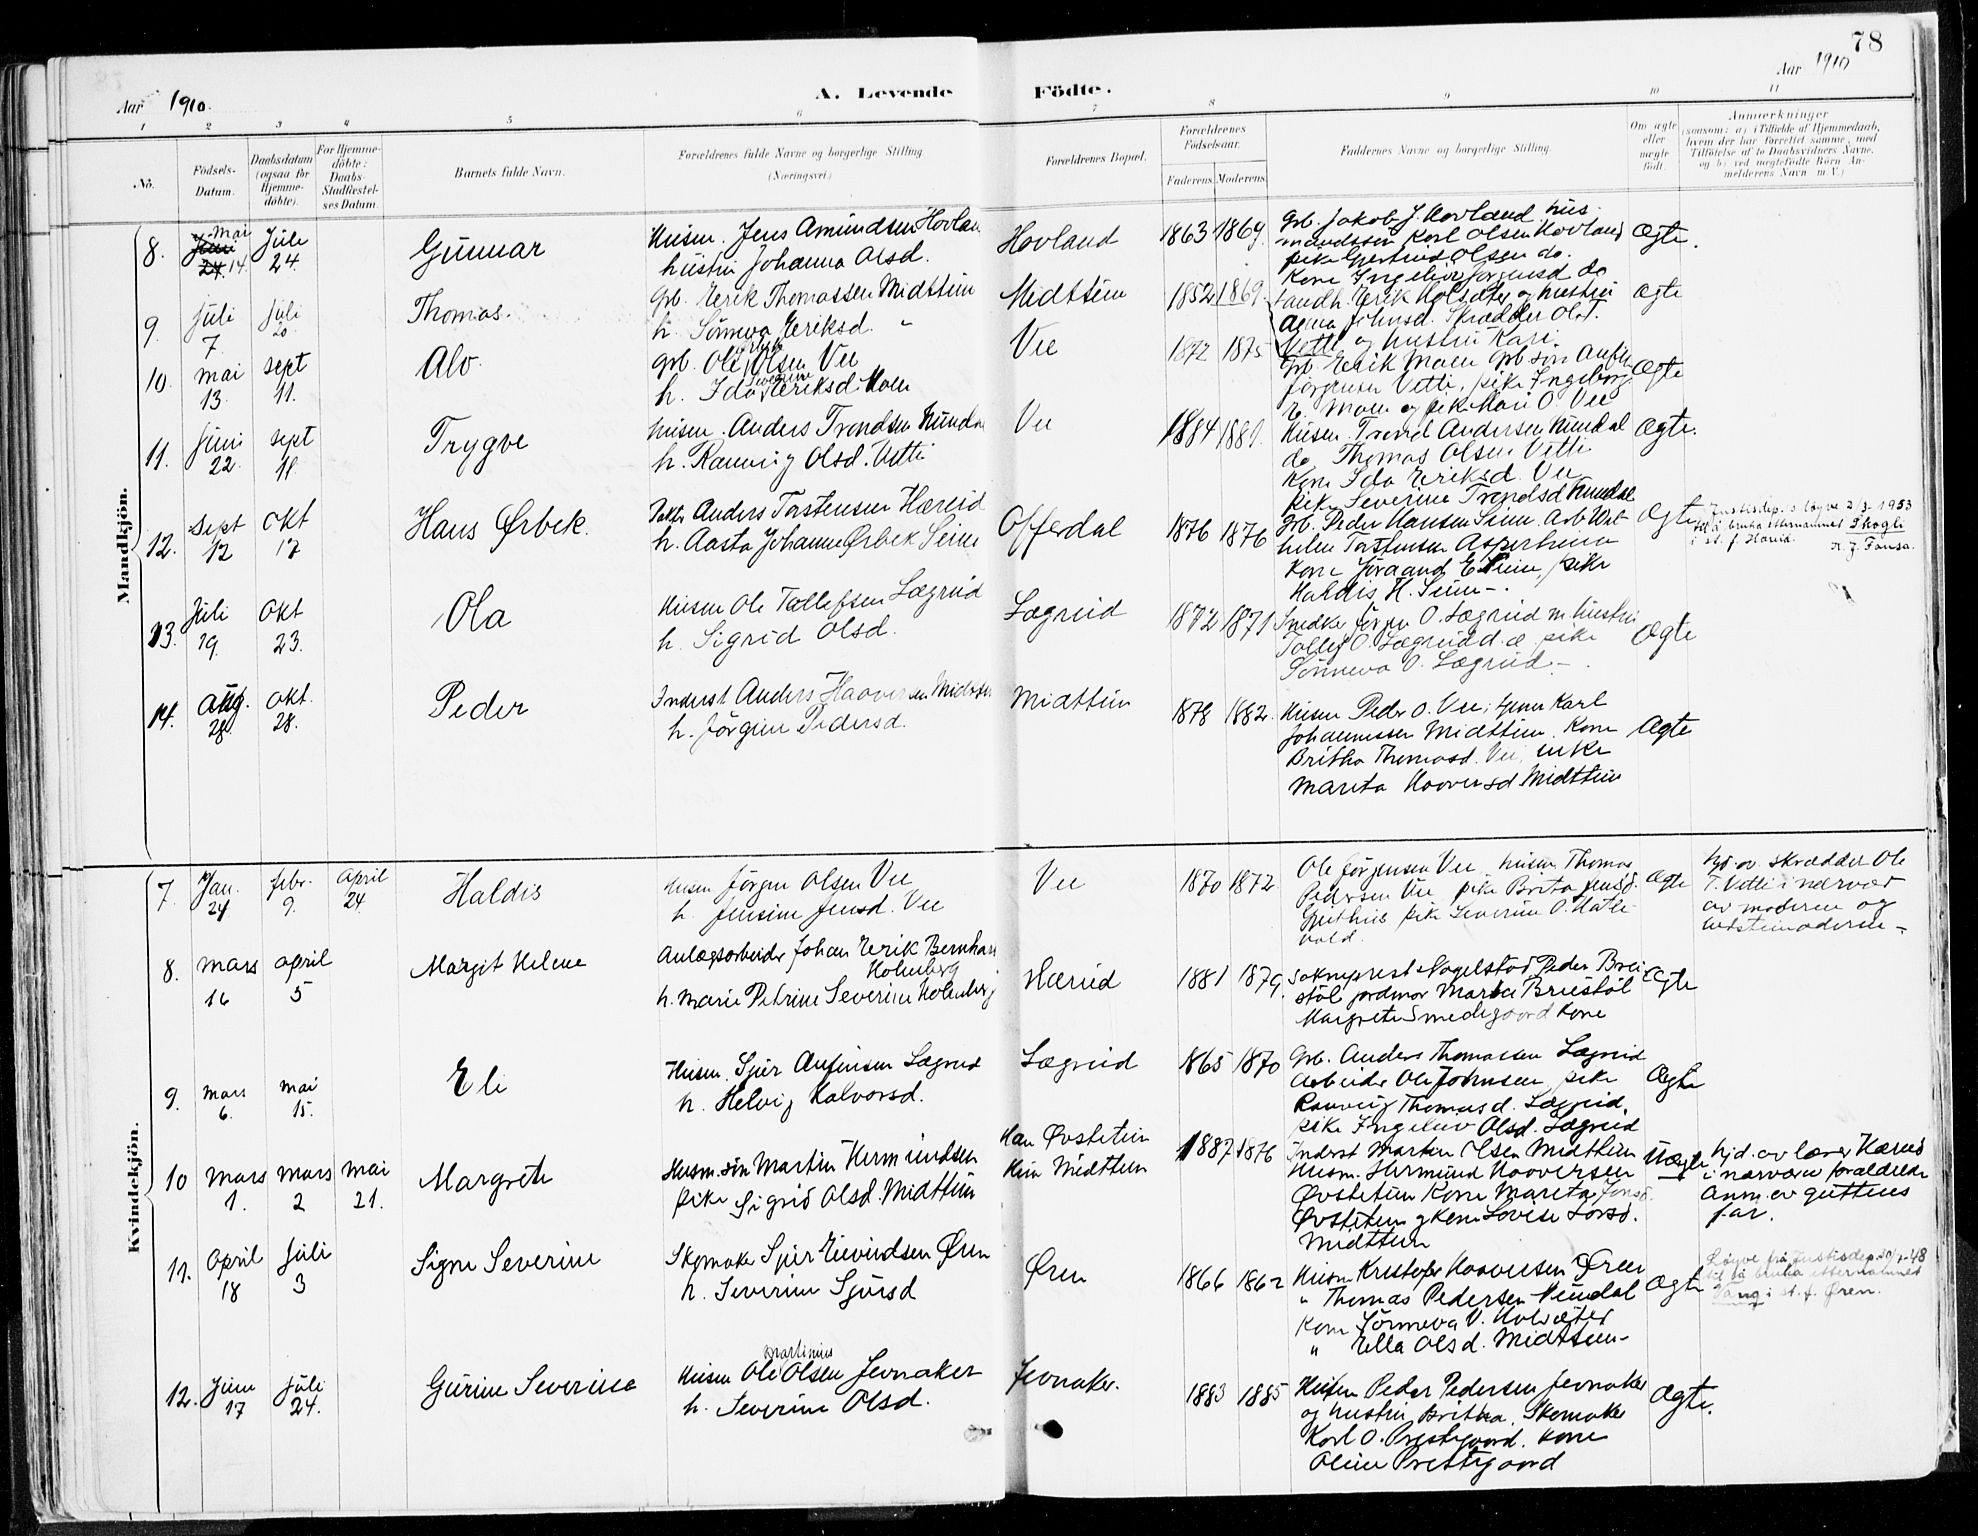 78
Aar 1910.
A. Levende Födte.
Aar 1910
1 2 3 4 5 6 7 8 9 10 11
No.
Födsels-Datum.
Daabsdatum (ogsaa for Hjemme-döbte).
For Hjemme-döbte: Daabs-Stadfæstel-ses Datum.
Barnets fulde Navn.
Forældrenes fulde Navne og borgerlige Stilling (Næringsvei.)
Forældrenes Bopæl.
Forældrenes Födselsaar.
Faderens. Moderens.
Faddernes Navne og borgerlige Stilling.
Om ægte eller uægte födt.
Anmærkninger
(saasom: a) i Tilfælde af Hjemmedaab,
hvem der har forrettet samme, med
Tilföielse af to Daabsvidners Navne,
og b) ved uegtefödte Börn An-
melderens Navn m. V.)
Mandkjön.
8. Mai 14. Juli 24. Gunnar
Husm. Jens Amundsen Hovlan
hustru Johanna Olsd.
Hovland 1863 1869.
Grb. Jakob J. Hovland. hus-
mandssön Karl Olsen Hovland
pike Gjertrud Olsen do.
Kone Ingeliv Jörgensd do
Ægte.
9. Juli 7. Juli 20 Thomas.
Grb. Eerik Thomassen Midttun
h. Sönneva Eeriksd. "
Midttun 1852 1869
Landh. Eerik Holsæter og hustru
Agna Johnsd. Skrædder Ola T.
Vetti og hustru Kari.
Ægte
10. Mai 13. Sept 11. Alv.
Grb. Ole Olsen Vee
h. Ida Severine Eeriksd. Moen
Vee 1872 1875
Grb. Eerik Moen Grb. sön Anfin
Jörgensen Vetti, pike Ingeborg
E. Moen og pike Kari O. Vee
Ægte
11. Juni 22. Sept 11. Trygve
Husm. Anders Trondsen Nundal
h. Rannvig Olsd. Vetti
Vee 1884 1881.
Husm. Trond Andersen Nundal
do Thomas Olsen Vetti
Kone Ida Eeriksd. Vee
pike Severine Trondsd Nundal
Ægte.
12. Sept 12 Okt 17 Hans Ørbek.
Anders Torstensen Hæreid
h. Aasta Johanne Ørbek Seim
Offerdal 1876 1876
Grb. Peder Hansen Seim. Arb.
Torstensen Asperheim
Kone Jöraand E. Seim, pike
Haldis H. Seim -.
Ægte
Justisdep.s löyve 2/3-1953
til å bruka etternamnet Skogli
i st. f. Hæreid.
13. Juli 19. Okt 23. Ola
Husm Ole Tollefsen Lægreid
h. Sigrid Olsd.
Lægreid 1872 1871
Snedker Jörgen O. Lægreid m. hustru
Tollef O. Lægreid d.æ. pike
Sönneva O. Lægreid -.
Ægte
14. Aug. 28. Okt. 28. Peder
Inderst Anders Haaversen Midttun
h. Jörgine Pedersd.
Midttun 1878 1882.
Husm Peder O. Vee, Karl
Johannessen Midttun. Kone
Britha Thomasd. Vee, enke
Marita Haaversd Midttun
Ægte
Kvindekjön.
7. Jan. 24 febr. 9. April 24. Haldis
Husm Jörgen Olsen Vee
h. Jensine Jensd. Vee
Vee 1870 1872
Ole Jörgensen Vee, husm Thomas
Pedersen Vee pike Brita Jensd.
pike Severine O. Hatle-
vold.
Ægte
hjd. av. skrædder Ole
T. Vetti i nærvær
av moderen og
bedstemoderen -
8. Mars 16 April 5 Margit Helene
Anlægsarbeider Johan Eerik Bernhard
Holmberg
h. Marie Petrine Severine Holmberg
Hæreid 1881 1879.
Sokneprest Nagelstad Peder Brei-
stöl jordmor Marta Breistöl
Margrete Smedegaard kone
Ægte
9. Mars 6. Mai 15. Eli
Husm. Sjur Anfinsen Lægreid
h. Helvig Halvorsd.
Lægreid 1865 1870
Grb. Anders Thomassen Lægreid
Arbeider Ole Johnsen, pike
Rannveig Thomasd. Lægreid.
pike Ingeliv Olsd. Lægreid
Ægte
10 Mars 1. Mars 2 Mai 21. Margrete
Husm. sön Martin Hermundsen
pike Sigrid Olsd. Midttun
Han Øvstetun
Hun Midttun
1887 1876
Inderst Marten Olsen Midttun
Husm. Hermund Haaversen
Øvstetun Kone Marita Jonsd.
Øvstetun og kone Lovise Larsd.
Midttun
Uægte
hjd. av lærer Hæreid
i nærvær av foreldrene
Anm. av guttens
far.
11. April 18 Juli 3 Signe Severine
Skomaker Sjur Eivindsen Øren
h. Severine Sjursd
Øren 1866 1862
Husm Kristofer Haaversen Øren
" Thomas Pedersen Nundal
Kone Sönneva V. Holsæter
" Ella Olsd. Midttun -
Ægte
Löyve frå Justisdep. 48
til å bruka etternamnet
Vang i st. f. Øren.
12. Juni 17 Juli 24. Gurine Severine
Husm Ole Martinius Olsen Jevnaker
h. Severine Olsd.
Jevnaker. 1883 1885
Husm Peder Pedersen Jevnaker
og hustru Britha, Skomaker
Karl O. Prestegaard. kone
Oline Prestegaard
Ægte.